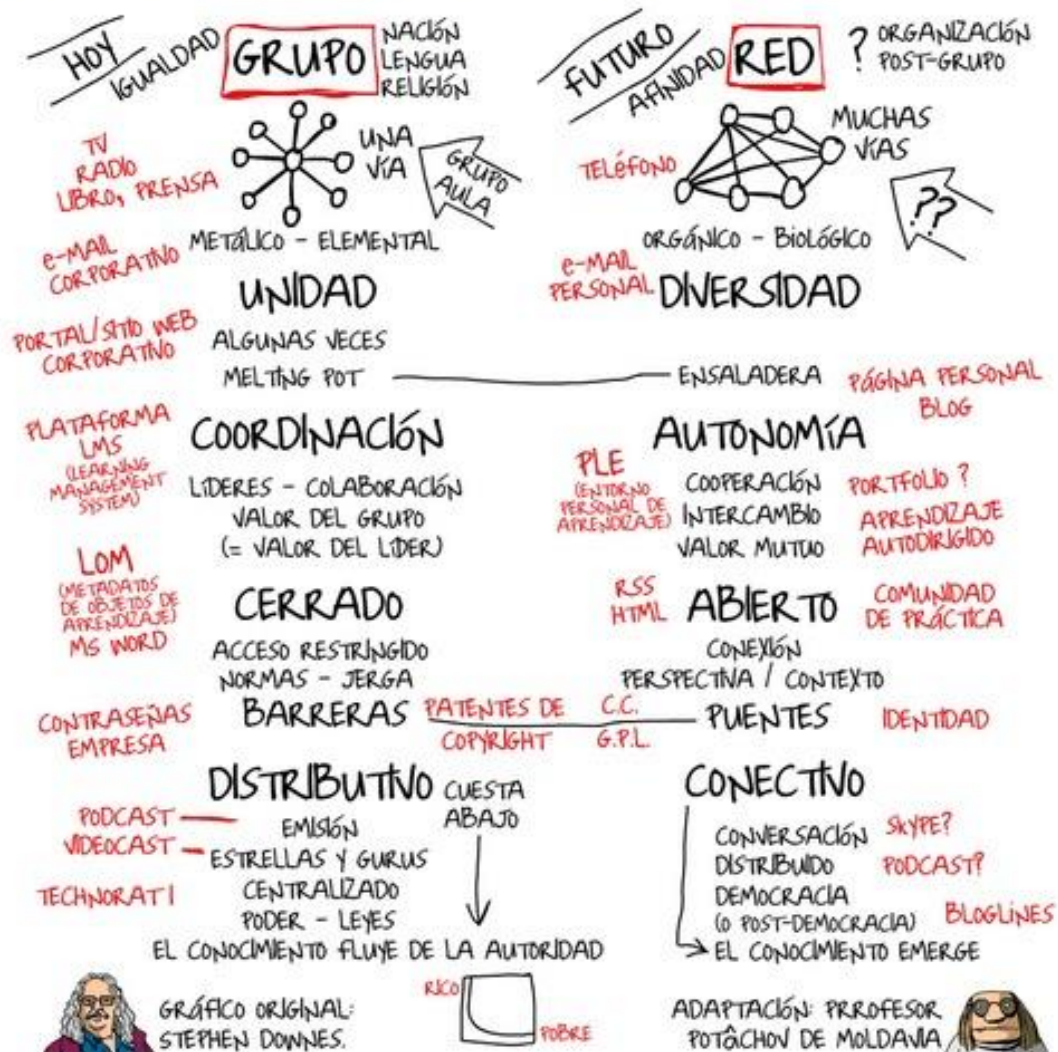 HOY
IGUALDAD
GRUPO
NACIÓN
LENGUA
RELIGIÓN
TV
RADIO
LIBRO, PRENSA
UNA
VÍA
GRUPO
AULA
METÁLICO - ELEMENTAL
e-MAIL
CORPORATIVO
UNIDAD
PORTAL/SITIO WEB
CORPORATIVO
ALGUNAS VECES
MELTING POT
PLATAFORMA
LMS
(LEARNING
MANAGEMENT
SYSTEM)
COORDINACIÓN
LÍDERES - COLABORACIÓN
VALOR DEL GRUPO
(= VALOR DEL LÍDER)
LOM
(METADATOS
DE OBJETOS DE
APRENDIZAJE)
MS WORD
CERRADO
ACCESO RESTRINGIDO
NORMAS - JERGA
CONTRASEÑAS
EMPRESA
BARRERAS
PATENTES DE
COPYRIGHT
DISTRIBUTIVO
CUESTA
ABAJO
PODCAST
VIDEOCAST
TECHNORATI
EMISIÓN
ESTRELLAS Y GURUS
CENTRALIZADO
PODER - LEYES
EL CONOCIMIENTO FLUYE DE LA AUTORIDAD
RICO
POBRE
GRÁFICO ORIGINAL:
STEPHEN DOWNES.
FUTURO
AFINIDAD
RED
? ORGANIZACIÓN
POST-GRUPO
TELÉFONO
MUCHAS
VÍAS
??
ORGÁNICO - BIOLÓGICO
e-MAIL
PERSONAL
DIVERSIDAD
ENSALADERA
PÁGINA PERSONAL
BLOG
AUTONOMÍA
PLE
(ENTORNO
PERSONAL DE
APRENDIZAJE)
COOPERACIÓN
INTERCAMBIO
VALOR MUTUO
PORTFOLIO ?
APRENDIZAJE
AUTODIRIGIDO
RSS
HTML
ABIERTO
COMUNIDAD
DE PRÁCTICA
CONEXIÓN
PERSPECTIVA / CONTEXTO
C.C.
G.P.L.
PUENTES
IDENTIDAD
CONECTIVO
CONVERSACIÓN
DISTRIBUIDO
DEMOCRACIA
(O POST-DEMOCRACIA)
EL CONOCIMIENTO EMERGE
SKYPE?
PODCAST?
BLOGLINES
ADAPTACIÓN: PRROFESOR
POTÂCHOV DE MOLDAVIA